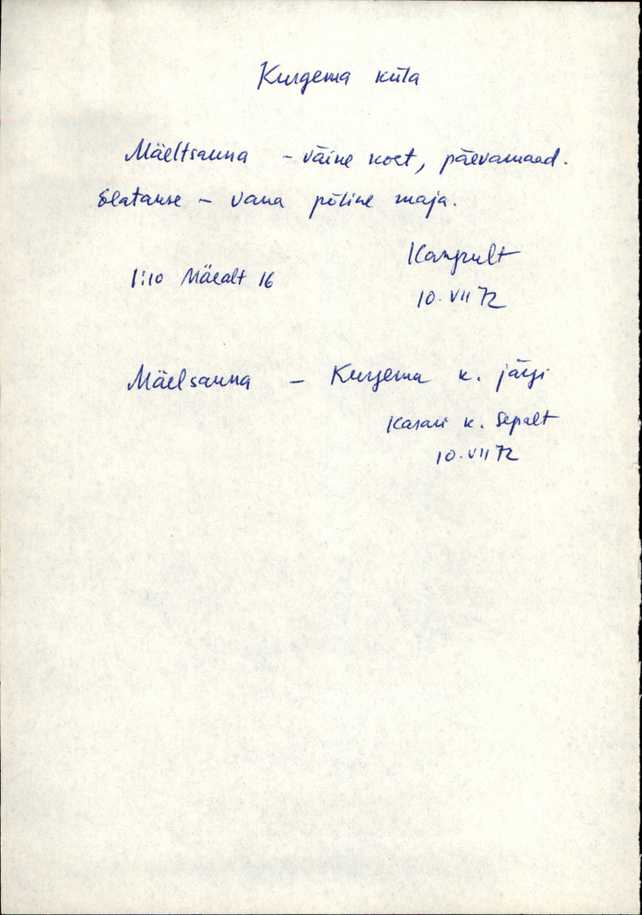 Kurgema küla
Mäeltsauna - väine koet, päevamaad.
Elatanse - vana põline maja.
Kangrult
1:10 Mäealt 16
10. VII 72
Mäelsauna - Kurgema k. järgi
Kasari k. Sepalt
10. VII 72